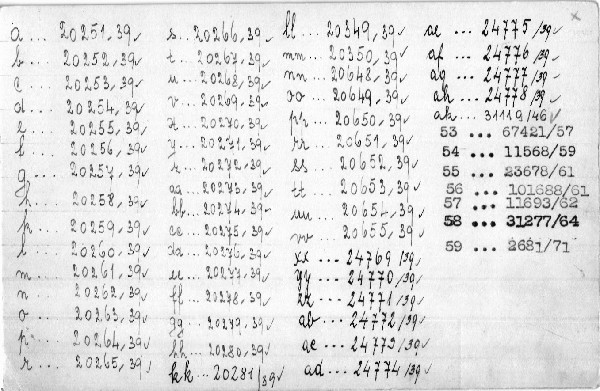 a ... 20251,39✓
b ... 20252,39✓
c ... 20253,39✓
d ... 20254,39✓
e ... 20255,39✓
f ... 20256,39✓
g ... 20257,39✓
h ... 20258,39✓
k ... 20259,39✓
l ... 20260,39✓
m ... 20261,39✓
n ... 20262,39✓
o ... 20263,39✓
p ... 20264,39✓
r ... 20265,39✓
s ... 20266,39✓
t ... 20267,39✓
u ... 20268,39✓
v ... 20269,39✓
x ... 20270,39✓
y ... 20271,39✓
z ... 20272,39✓
aa ... 20273,39✓
bb ... 20274,39✓
cc ... 20275,39✓
dd ... 20276,39✓
ee ... 20277,39✓
ff ... 20278,39✓
gg ... 20279,39✓
hh ... 20280,39✓
kk ... 20281/39✓
ll ... 20349,39✓
mm ... 20350,39✓
nn ... 20648,39✓
oo ... 20649,39✓
pp ... 20650,39✓
rr ... 20651,39✓
ss ... 20652,39✓
tt ... 20653,39✓
uu ... 20654,39✓
vv ... 20655,39✓
xx ... 24769/39✓
yy ... 24770/39✓
zz ... 24771/39✓
ab ... 24772/39✓
ac ... 24773/39✓
ad ... 24774/39✓
ae ... 24775/39✓
af ... 24776/39✓
ag ... 24777/39✓
ah ... 24778/39✓
ak ... 31119/46✓
53 ... 67421/57
54 ... 11568/59
55 ... 23678/61
56 ... 101688/61
57 ... 11693/62
58 ... 31277/64
59 ... 2681/71